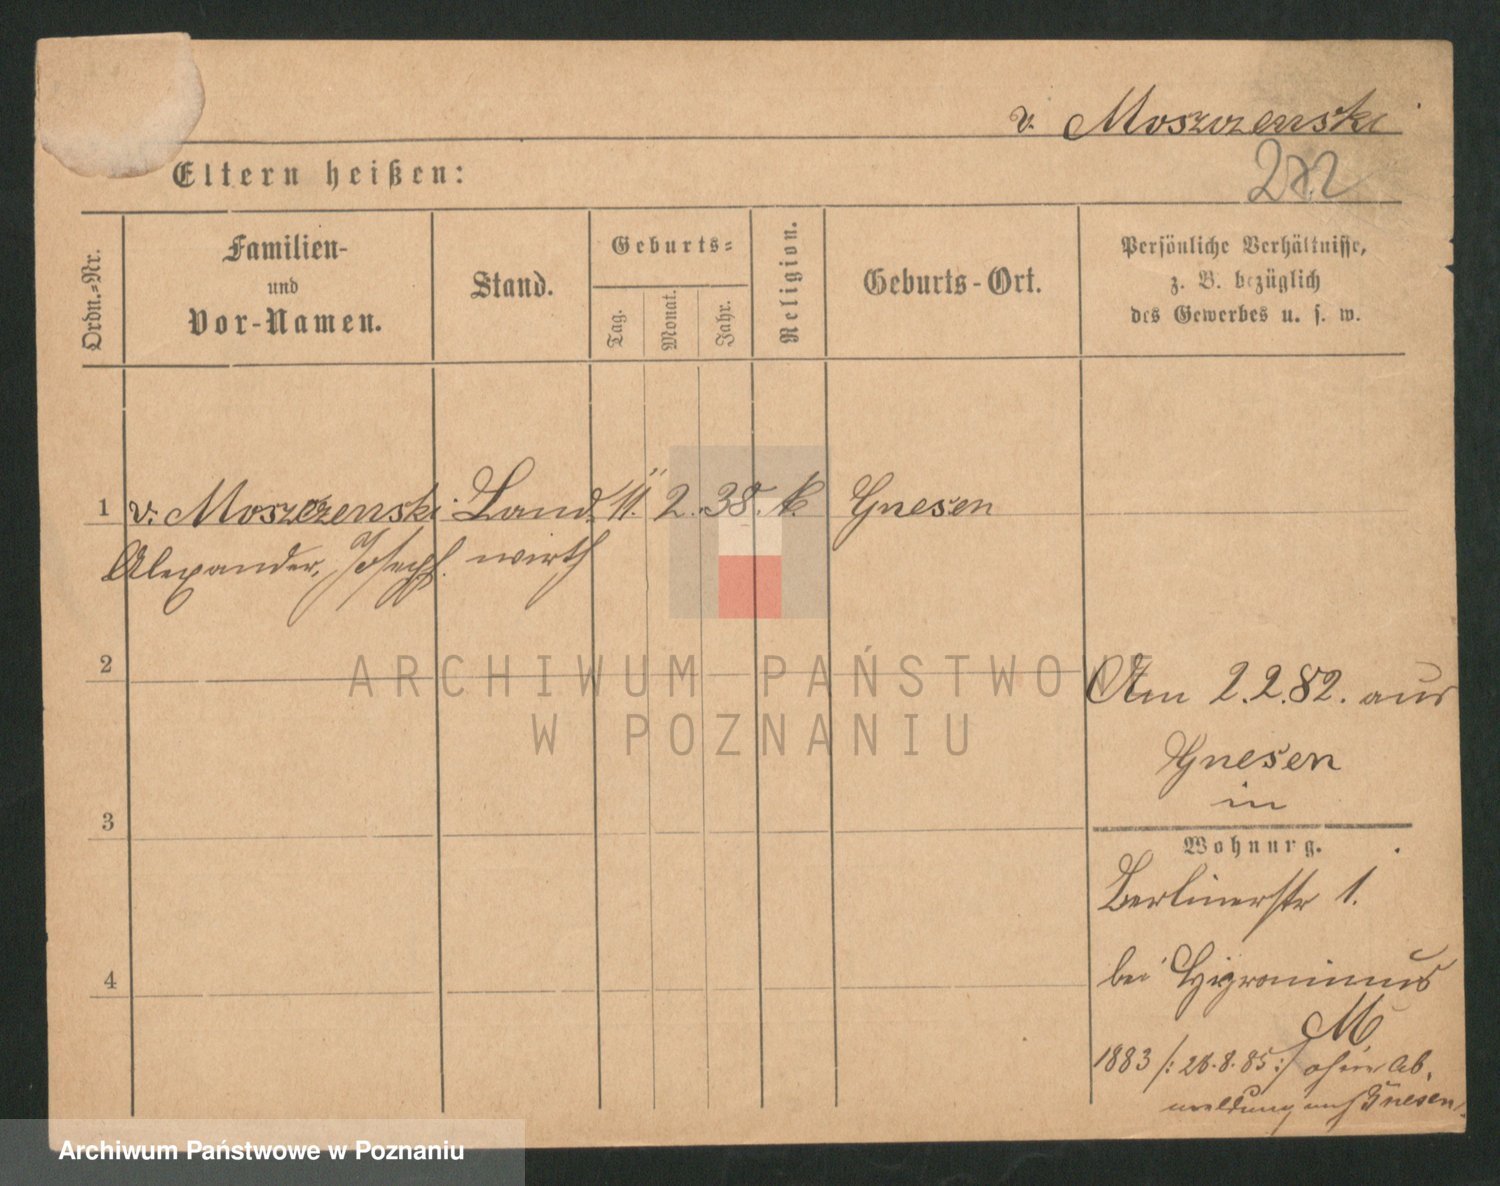 v. Moszczenski
222
Eltern heißen:
Ordn.-Nr.
Familien-
und
Vor-Namen.
Stand.
Geburts-
Tag.
Monat.
Jahr.
Religion.
Geburts-Ort.
Persönliche Verhältnisse,
z. B. bezüglich
des Gewerbes u. s. w.
1 v. Moszczenski Land 11. 2. 38. k. Gnesen
Alexander, Joseph. wirth
2
Am 2.2.82. aus
Gnesen
in
3
Wohnung.
Berlinerstr 1.
4
bei Hyronimus
M
1883 /: 28.8.85 :/ ohne Ab-
meldung nach Gnesen.
ARCHIWUM PAŃSTWOWE
W POZNANIU
Archiwum Państwowe w Poznaniu